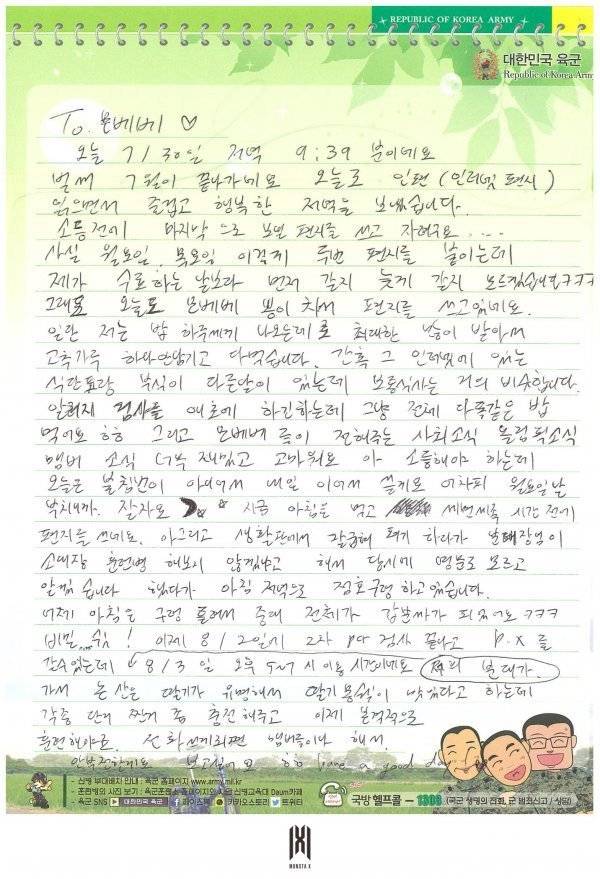 REPUBLIC OF KOREA ARMY
대한민국 육군
Republic of Korea Army
To. 몬베베 ♡
오늘 7/30일 저녁 9:39 분이네요
벌써 7월이 끝나가네요 오늘도 인편(인터넷 편지)
읽으면서 즐겁고 행복한 저녁을 보냈습니다.
소등전에 마지막으로 보낼 편지를 쓰고 자려구요....
사실 월요일, 목요일 이렇게 두번 편지를 붙이는데
제가 수료하는날보다 먼저 갈지 늦게 갈지 모르겠습니다ㅋㅋㅋ
그래도 오늘도 몬베베 뽕이 차서 편지를 쓰고있네요.
일단 저는 밥 하루세끼 나오는데로 최대한 많이 받아서
고춧가루 하나안남기고 다먹습니다. 간혹 그 인터넷에 있는
식단표랑 부식이 다른날이 있는데 보통식사는 거의 비슷합니다.
검사를 애초에 하긴하는데 그냥 전체 다똑같은 밥
먹어요 ㅎㅎ 그리고 몬베베 들이 전해주는 사회소식 올림픽소식
멤버 소식 너무 재밌고 고마워요 아 소등해야 하는데
오늘은 불침번이 아니여서 내일 이어서 쓸게요 어차피 월요일날
부치니까. 잘자요 지금 아침을 먹고 세면세족 시간 전에
편지를 쓰네요. 아그리고 생활관에서 하다가 분대장님이
소대장 훈련병 해보지 않겠냐고 해서 당시에 멋모르고
알겠습니다 했다가 아침 저녁으로 점호구령 하고있습니다.
어제 아침은 구령 틀려서 중대 전체가 갑분싸가 되었어요 ㅋㅋㅋ
비밀 쉿! 이제 8/2일에 2차 pcr 검사 끝나고 P.X를
갈수 있는데 8/3 일 오후 시 이용시간이네요 저의 분대가.
가서 논산은 딸기가 유명해서 딸기몽쉘이 맛있다고 하는데
각종 단거 짠거 좀 충전해주고 이제 본격적으로
훈련해야죠. 전화 쓰게되면 멤버들이나 해서.
안부전할게요 보고싶어요 ㅎㅎ have a good day
- 신병 부대배치 안내 : 육군 홈페이지 www.army.mil.kr
- 훈련병의 사진 보기 : 육군훈련소 홈페이지와 신병교육대 Daum카페
- 육군 SNS ▶ 대한민국 육군 페이스북 카카오스토리 트위터
국방헬프콜 - 1303 (국군 생명의 전화, 군 범죄신고 / 상담)
MONSTA X